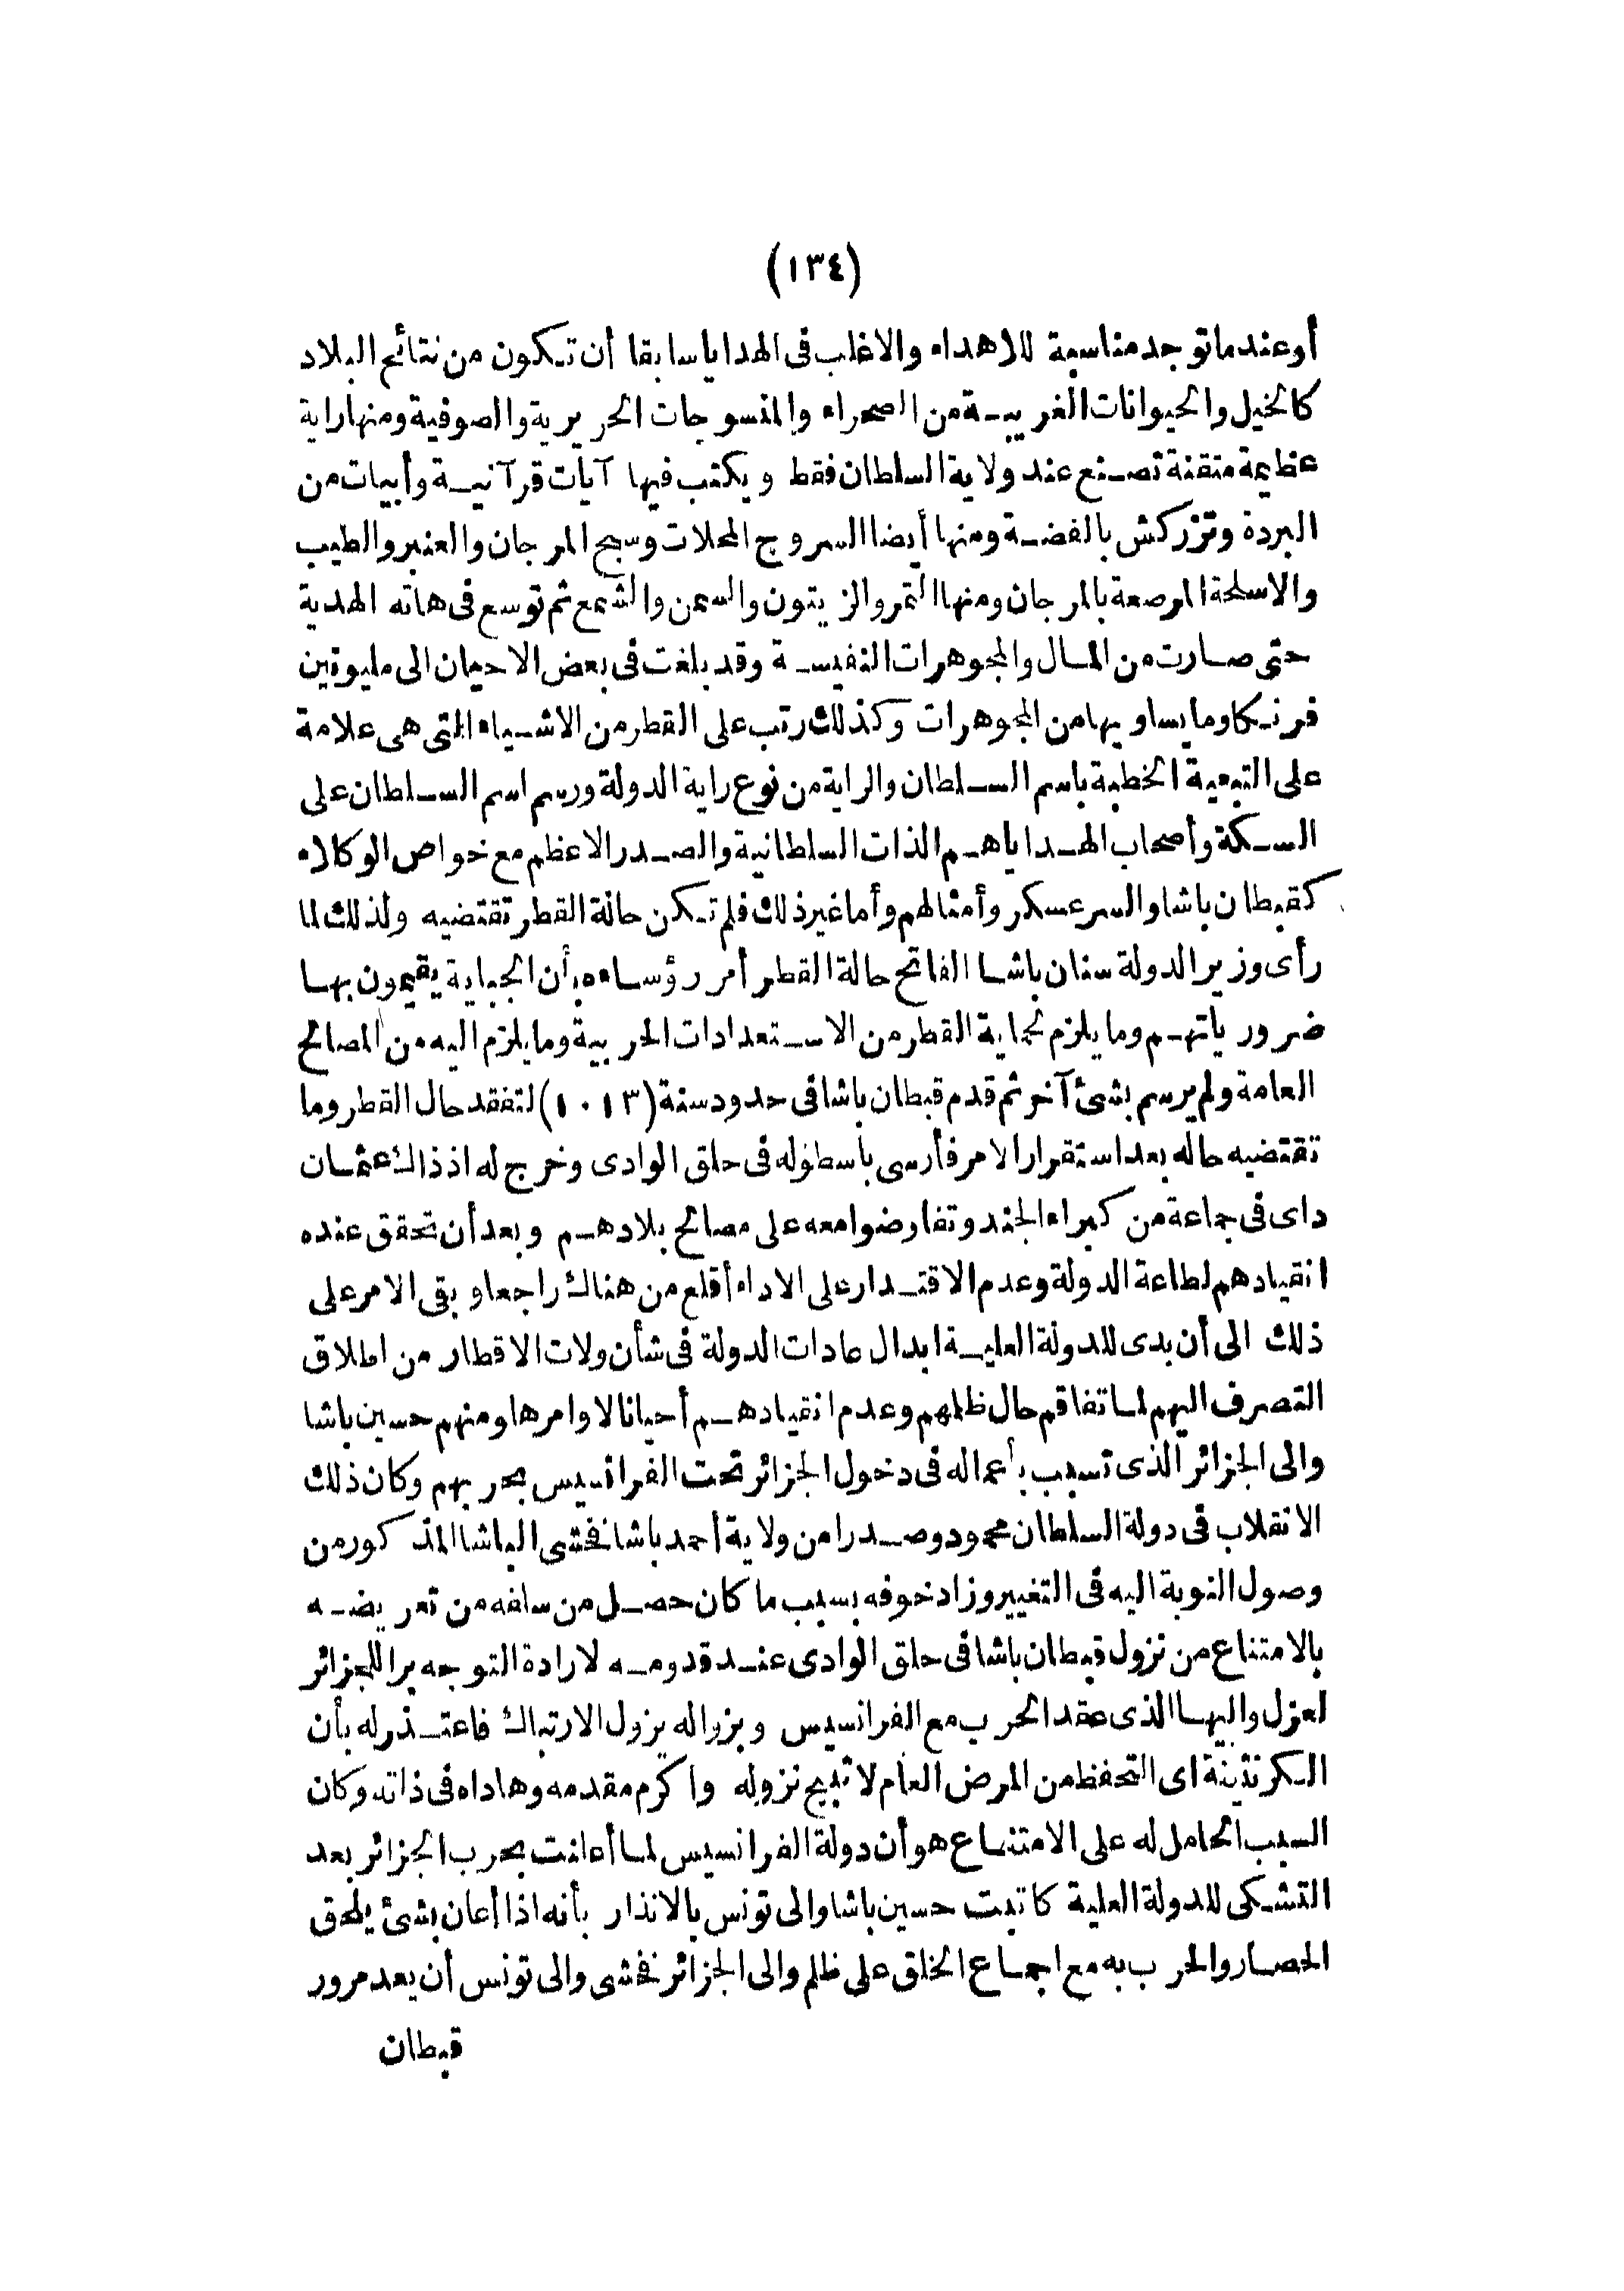 (١٣٤)
أو عند ما توجد مناسبة للاهداء والاغلب فى الهدايا سابقا أن تكون من نتائج البلاد
كالخيل والحيوانات الغريبة من الصحراء والمنسوجات الحريرية والصوفية ومنها راية
عظيمة متقنة تصنع عند ولاية السلطان فقط ويكتب فيها آيات قرآنية وأبيات من
البردة وتزركش بالفضة ومنها أيضا السروج المحلات وسبح المرجان والعنبر والطيب
والاسلحة المرصعة بالمرجان ومنها التمر والزيتون والسمن والشمع ثم توسع فى هاته الهدية
حتى صارت من المال والمجوهرات النفيسة وقد بلغت فى بعض الاحيان الى مليونين
فرنكا وما يساويها من المجوهرات وكذلك رتب على القطر من الاشياء التى هى علامة
على التبعية الخطبة باسم السلطان والراية من نوع راية الدولة ورسم اسم السلطان على
السكة وأصحاب الهدايا هم الذات السلطانية والصدر الاعظم مع خواص الوكلاء
كقبطان باشا والسرعسكر وأمثالهم وأما غير ذلك فلم تكن حالة القطر تقتضيه ولذلك لما
رأى وزير الدولة سنان باشا الفاتح حالة القطر أمر رؤساءه بأن الجباية يقيمون بها
ضرورياتهم وما يلزم لحماية القطر من الاستعدادات الحربية وما يلزم اليه من المصالح
العامة ولم يرسم بشئ آخر ثم قدم قبطان باشا فى حدود سنة (١٠١٣) لتفقد حال القطر وما
تقتضيه حاله بعد استقرار الامر فأرسى بأسطوله فى حلق الوادى وخرج له اذ ذاك عثمان
داى فى جماعة من كبراء الجند وتفاوضوا معه على مصالح بلادهم وبعد أن تحقق عنده
انقيادهم لطاعة الدولة وعدم الاقتدار على الاداء أقلع من هناك راجعا وبقى الامر على
ذلك الى أن بدى للدولة العلية ابدال عادات الدولة فى شأن ولات الاقطار من اطلاق
التصرف اليهم لما تفاقم حال ظلمهم وعدم انقيادهم أحيانا لاوامرها ومنهم حسين باشا
والى الجزائر الذى تسبب بأعماله فى دخول الجزائر تحت الفرانسيس بحربهم وكان ذلك
الانقلاب فى دولة السلطان محمود وصدرا من ولاية أحمد باشا فخشى الباشا المذكور من
وصول النوبة اليه فى التغيير وزاد خوفه بسبب ما كان حصل من سلفه من تعريضه
بالامتناع من نزول قبطان باشا فى حلق الوادى عند قدومه لارادة التوجه برا للجزائر
لعزل واليها الذى عقد الحرب مع الفرانسيس وبزواله يزول الارتباك فاعتذر له بأن
الكرنتينة اى التحفظ من المرض العام لا تبيح نزوله واكرم مقدمه وهاداه فى ذاته وكان
السبب الحامل له على الامتناع هو أن دولة الفرانسيس لما أعلنت بحرب الجزائر بعد
التشكى للدولة العلية كاتبت حسين باشا والى تونس بالانذار بأنه اذا أعان بشئ يلحق
الحصار والحرب به مع اجماع الخلق على ظلم والى الجزائر فخشى والى تونس أن يعد مرور
قبطان